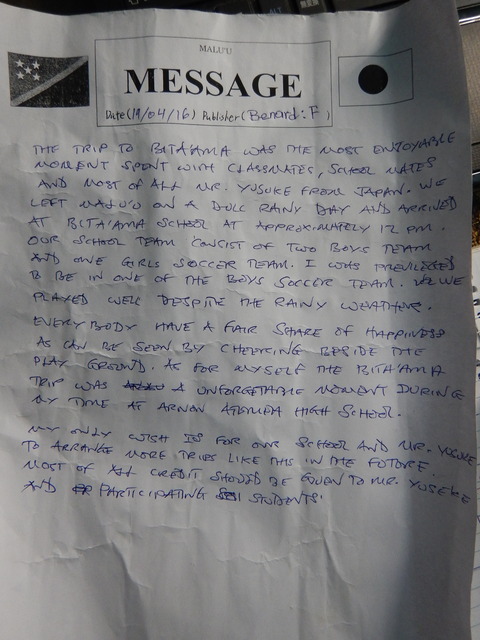 MALU'U
MESSAGE
Date(19/04/16) Publisher(Benard: F )
THE TRIP TO BITA'AMA WAS THE MOST ENJOYABLE
MOMENT SPENT WITH CLASSMATES, SCHOOL MATES
AND MOST OF ALL MR. YUSUKE FROM JAPAN. WE
LEFT MALU'U ON A DULL RAINY DAY AND ARRIVED
AT BITA'AMA SCHOOL AT APPROXIMATELY 12 PM.
OUR SCHOOL TEAM CONSIST OF TWO BOYS TEAM
AND ONE GIRLS SOCCER TEAM. I WAS PREVILEGED
TO BE IN ONE OF THE BOYS SOCCER TEAM. WE
PLAYED WELL DESPITE THE RAINY WEATHER.
EVERYBODY HAVE A FAIR SHARE OF HAPPINESS
AS CAN BE SEEN BY CHEERING BESIDE THE
PLAY GROUND. AS FOR MYSELF THE BITA'AMA
TRIP WAS A UNFORGETABLE MOMENT DURING
MY TIME AT ARNON ATOMEA HIGH SCHOOL.
MY ONLY WISH IS FOR OUR SCHOOL AND MR. YUSUKE
TO ARRANGE MORE TRIPS LIKE THIS IN THE FUTURE.
MOST OF ALL CREDIT SHOULD BE GIVEN TO MR. YUSUKE
AND PARTICIPATING STUDENTS.